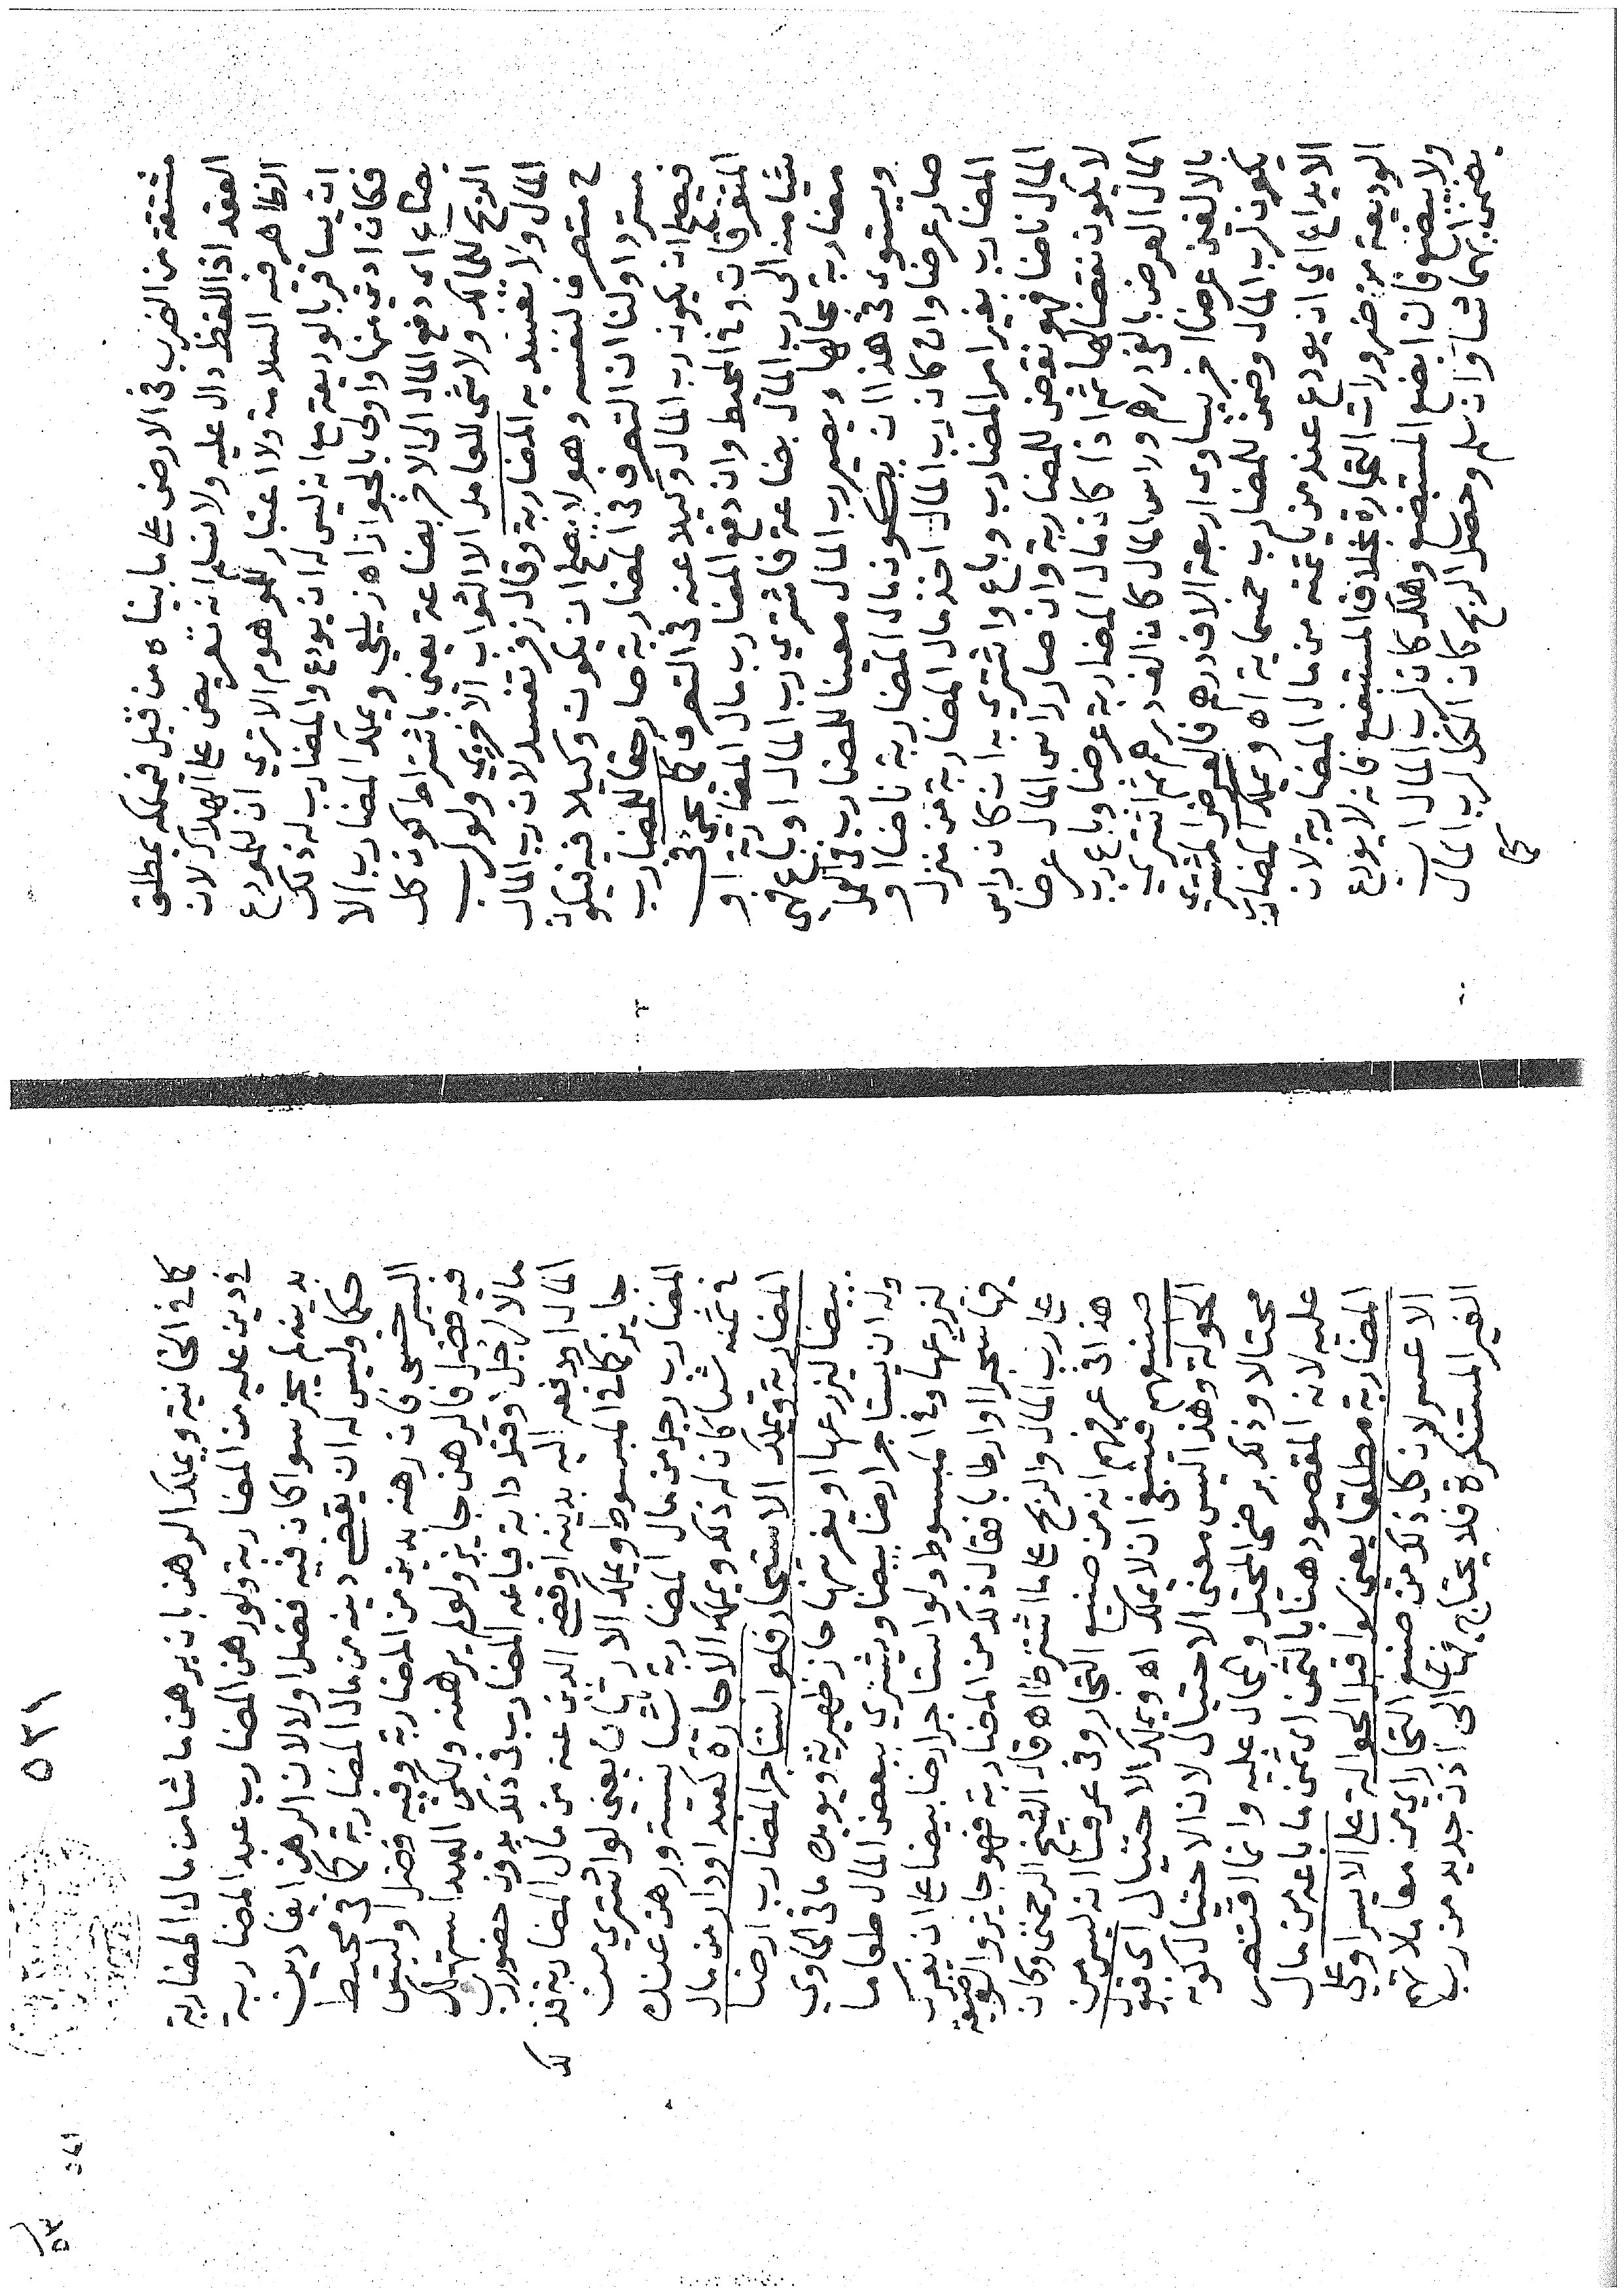 مشتقة من الضرب فى الارض على ما بيناه من قبل فيملكه بمطلق
العقد اذ اللفظ دال عليه ولا نسلم انه تعريض على الهلاك لان
الظاهر فيه السلامة ولا اعتبار للموهوم الا تري ان للمودع
ان يسافر بالوديعة مع انه ليس له ان يودع والمضارب له ذلك
فكان ادنى منها واولى بالجواز اه زيلعي ويملك المضارب الا
بضاع اى دفع المال الى الاخر بضاعة يعنى باشتراط كون كل
الربح للمالك ولا شى للعامل الا الثواب الاخروي ولو لرب
المال ولا تفسد به المضاربة وقال زفر تفسد لان رب المال
ح متصرف لنفسه وهو لا يصلح ان يكون وكيلا فيه فيكون
مستردا ولنا ان التصرف فى المضاربة صار حقا للمضارب
فيصح ان يكون رب المال وكيلا عنه فى التصرف كما يجئ فى
المتفرقات وفى المحيط وان دفع المضارب مال المضاربة او
شيئا منه الى رب المال بضاعة فاشترى رب المال او باع فهى
مضاربة بحالها ويصير رب المال معينا للمضارب فى العمل
ويستوى فى هذا ان يكون مال المضاربة ناضا او
صار عرضا وان كان رب المال اخذ مال المضاربة من منزل
المضارب بغير امر المضارب وباع واشتري به ان كان راس
المال ناضا فهو نقض للمضاربة وان صار راس المال عرضا
لا يكون نقضا لها ثم اذا كان مال المضاربة عرضا وباع رب
المال العرض بالفى درهم وراس المال كان الف درهم ثم اشتري
بالالفين عرضا اخر يساوى اربعة الاف درهم فالعرض المشتري
يكون لرب المال وضمن للمضارب خمسماية اه ويملك المضارب
الايداع اي ان يودع عند من ياتمنه من مال المضاربة لان
الوديعة من ضرورات التجارة بخلاف المستبضع فانه لا يودع
ولا يبضع فان ابضع المستبضع وهلك كان لرب المال ان
يضمن ايهما شا وان سلم وحصل الربح كان الكل لرب المال
كما
٥٣١
كما فى الخانية ويملك الرهن بان يرهن ما شا من مال المضاربة
فى دين عليه من المضاربة ولو رهن المضارب عبد المضاربة
بدينه لم يجز سوا كان فيه فضل او لا لان الرهن ايفا دين
حكما وليس له ان يقضى دينه من مال المضاربة كما فى محيط
السرخسى فان رهنه بدين من المضاربة وفيه فضل او ليس
فيه فضل فالرهن جايز ولو لم يرهنه ولكن العبد استهلك
مالا لرجل او قتل دابة فباعه المضارب فى ذلك بدون حضور رب
المال او دفعه اليه بدينه او قضى الدين عنه من مال المضاربة فذ
لك
جايز كما فى المبسوط ويملك الارتهان يعنى لو اشتري من
المضارب رجل من مال المضاربة شيا بنسيئة ورهن عنده
فى ثمنه شيا كان له ذلك ويملك الاجارة كعبد او دار من مال
المضاربة ويملك الاستيجار فلو استاجر المضارب ارضا
بيضا ليزرعها او يغرسها جاز ظهيرية ويؤيده ما فى الحاوي
وله ان يستاجر ارضا بيضا ويشتري ببعض المال طعاما
ليزرعها وفى المبسوط ولو استاجر ارضا بيضا على ان يغرس
فيها شجرا او ارطابا فقال ذلك من المضاربة فهو جايز والوضيعة
على رب المال والربح على ما اشترطا اه قال الشيخ الرحمتى وكان
هذا فى عرفهم انه من صنيع التجار وفى عرفنا انه ليس من
صنيعهم فينبغى ان لا يملك اه ويملك الاحتيال اى قبول
الحوالة وهذا ليس معنى الاحتيال لان الاحتيال كونه
محتالا وذلك برضى المحتل والمحال عليه وانما اقتصر
عليه لانه المقصود هنا بالثمن اي ثمن ما باعه من مال
المضاربة مطلقا يعنى سوا قبل الحوالة على الايسر او على
الاعسر لان كل ذلك من صنيع التجار اي من معاملاتهم
الغير المستنكرة فلا يحتاج فيها الى اذن جديد من رب